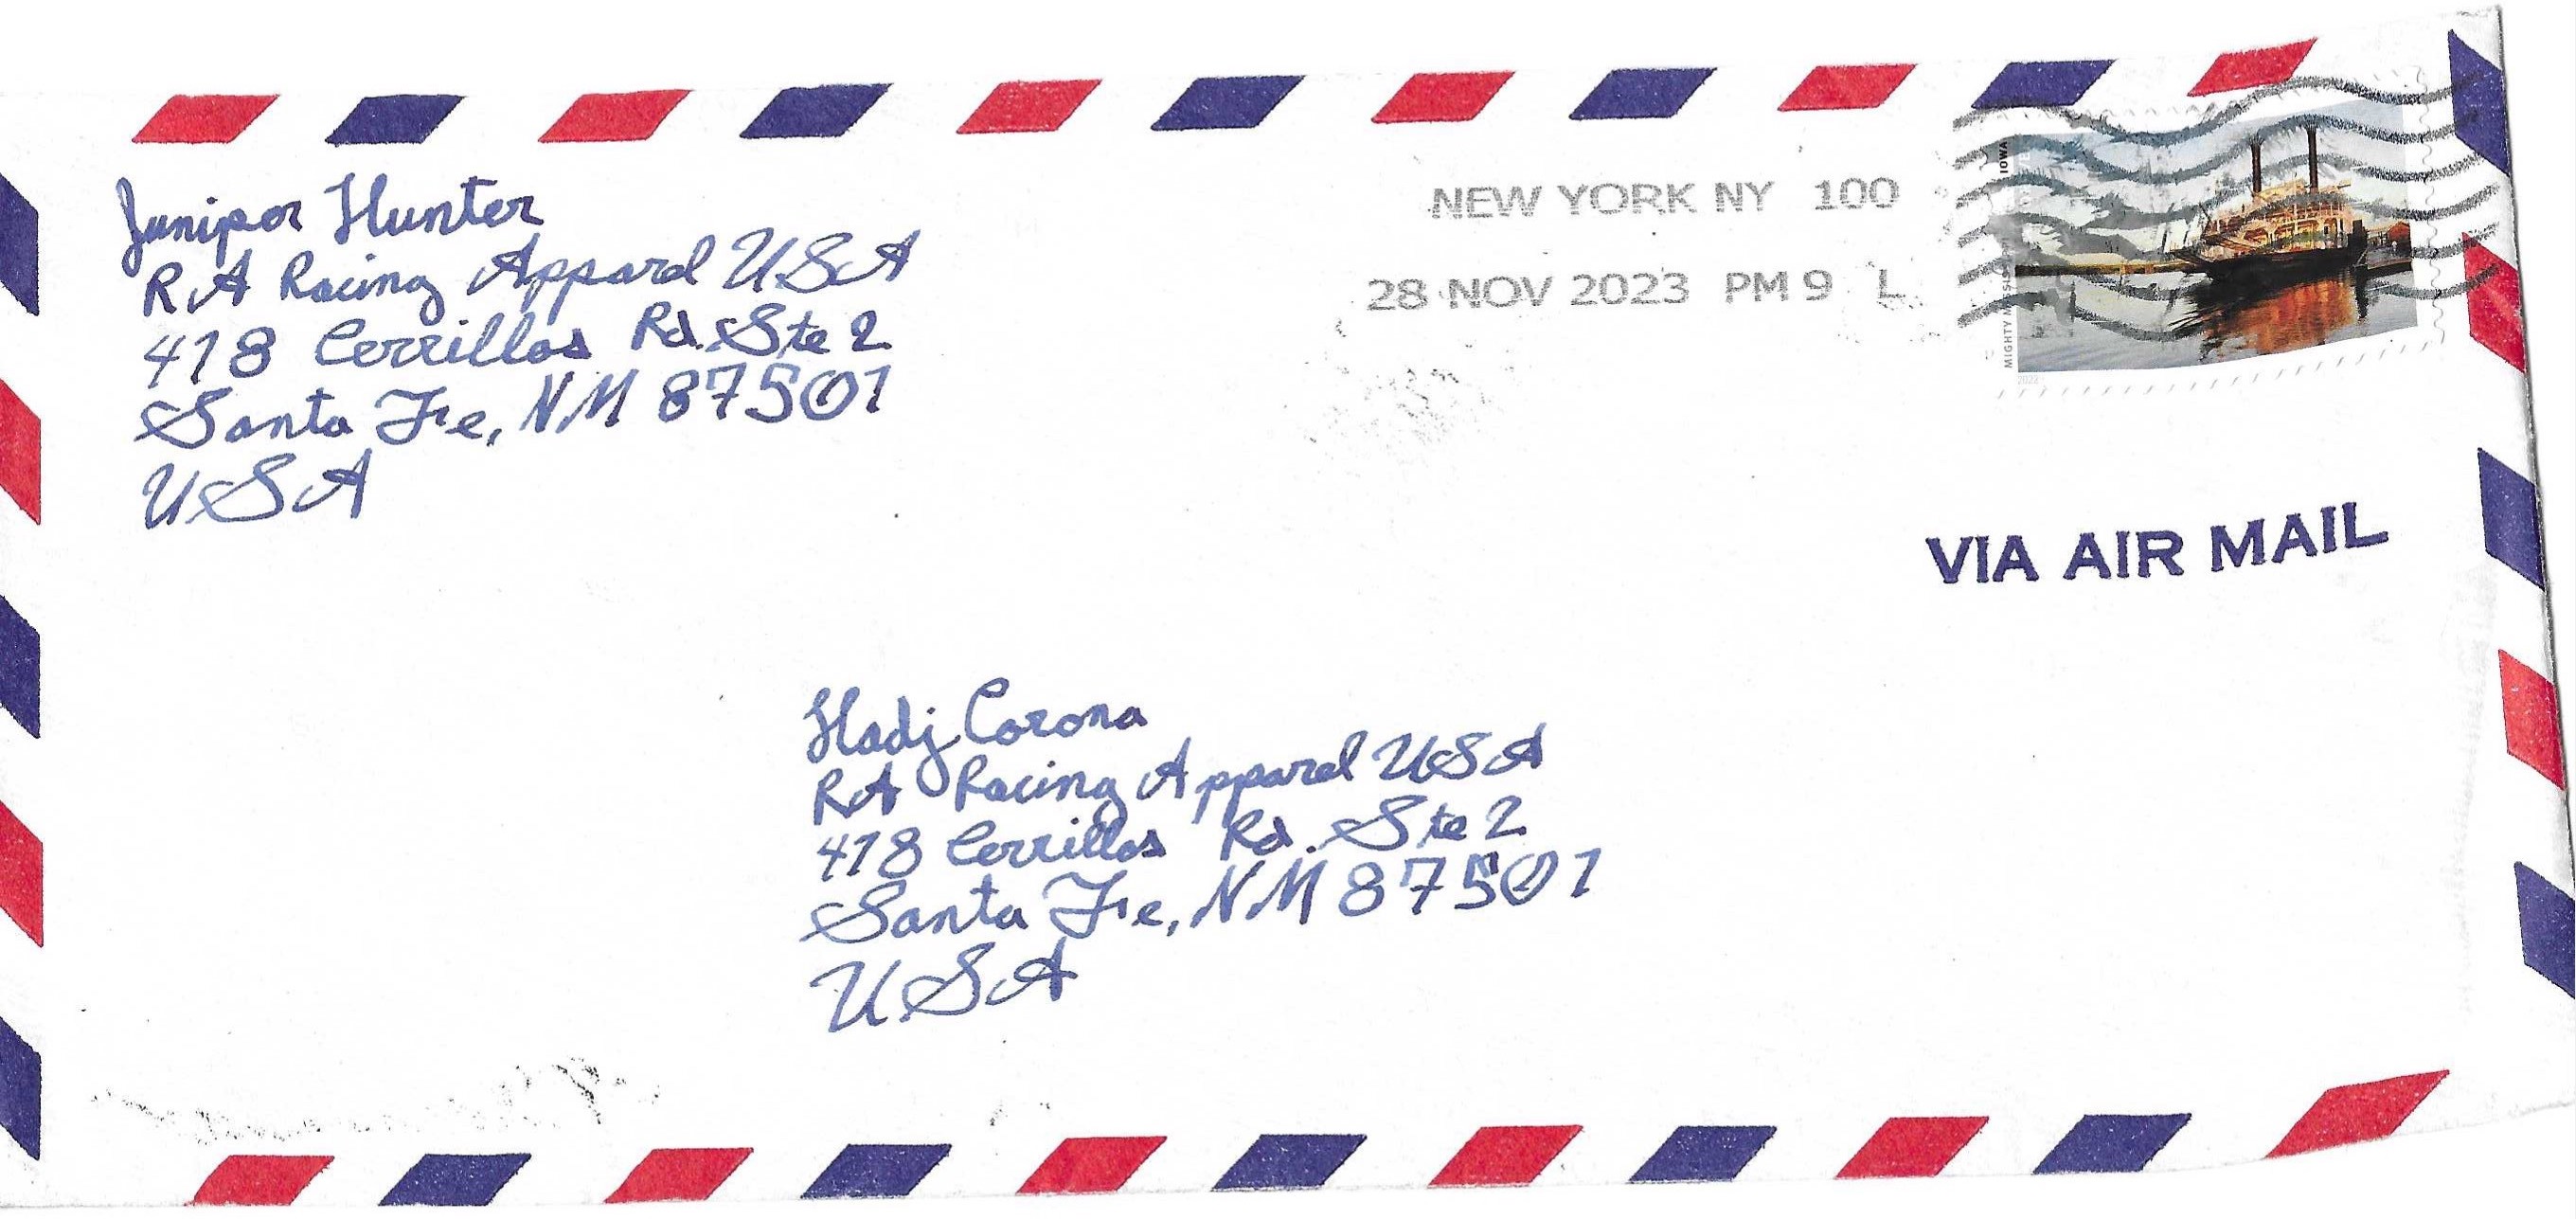 Junipor Hunter
RA Racing Apparel USA
418 Cerrillos Rd. Ste 2
Santa Fe, NM 87501
USA
NEW YORK NY 100
28 NOV 2023 PM 9 L
IOWA
MIGHTY
2022
VIA AIR MAIL
Hadj Corona
RA Racing Apparel USA
418 Cerrillos Rd. Ste 2
Santa Fe, NM 87501
USA